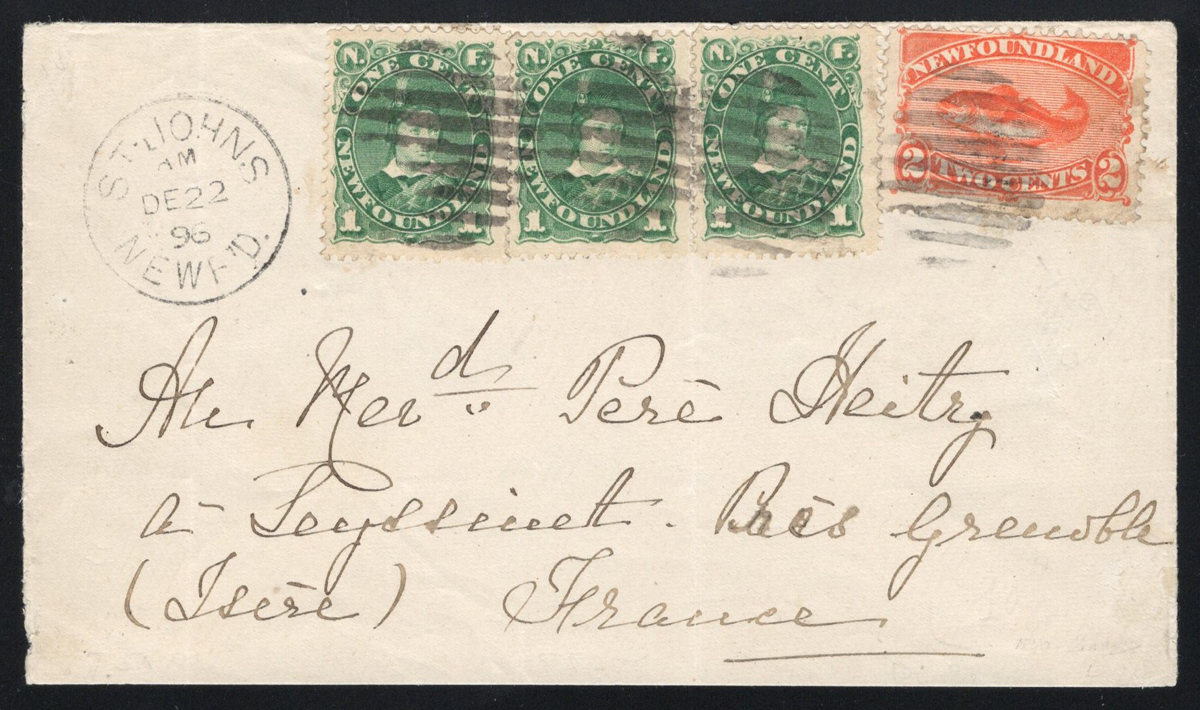 N. F.
ONE CENT.
NEWFOUNDLAND
1 1
N. F.
ONE CENT.
NEWFOUNDLAND
1 1
N. F.
ONE CENT.
NEWFOUNDLAND
1 1
NEWFOUNDLAND
2 TWO CENTS 2
ST. JOHN'S
AM
DE 22
96
NEWF'D.
Au Revd Père Heitry
à Seyssinet. Près Grenoble
(Isère) France